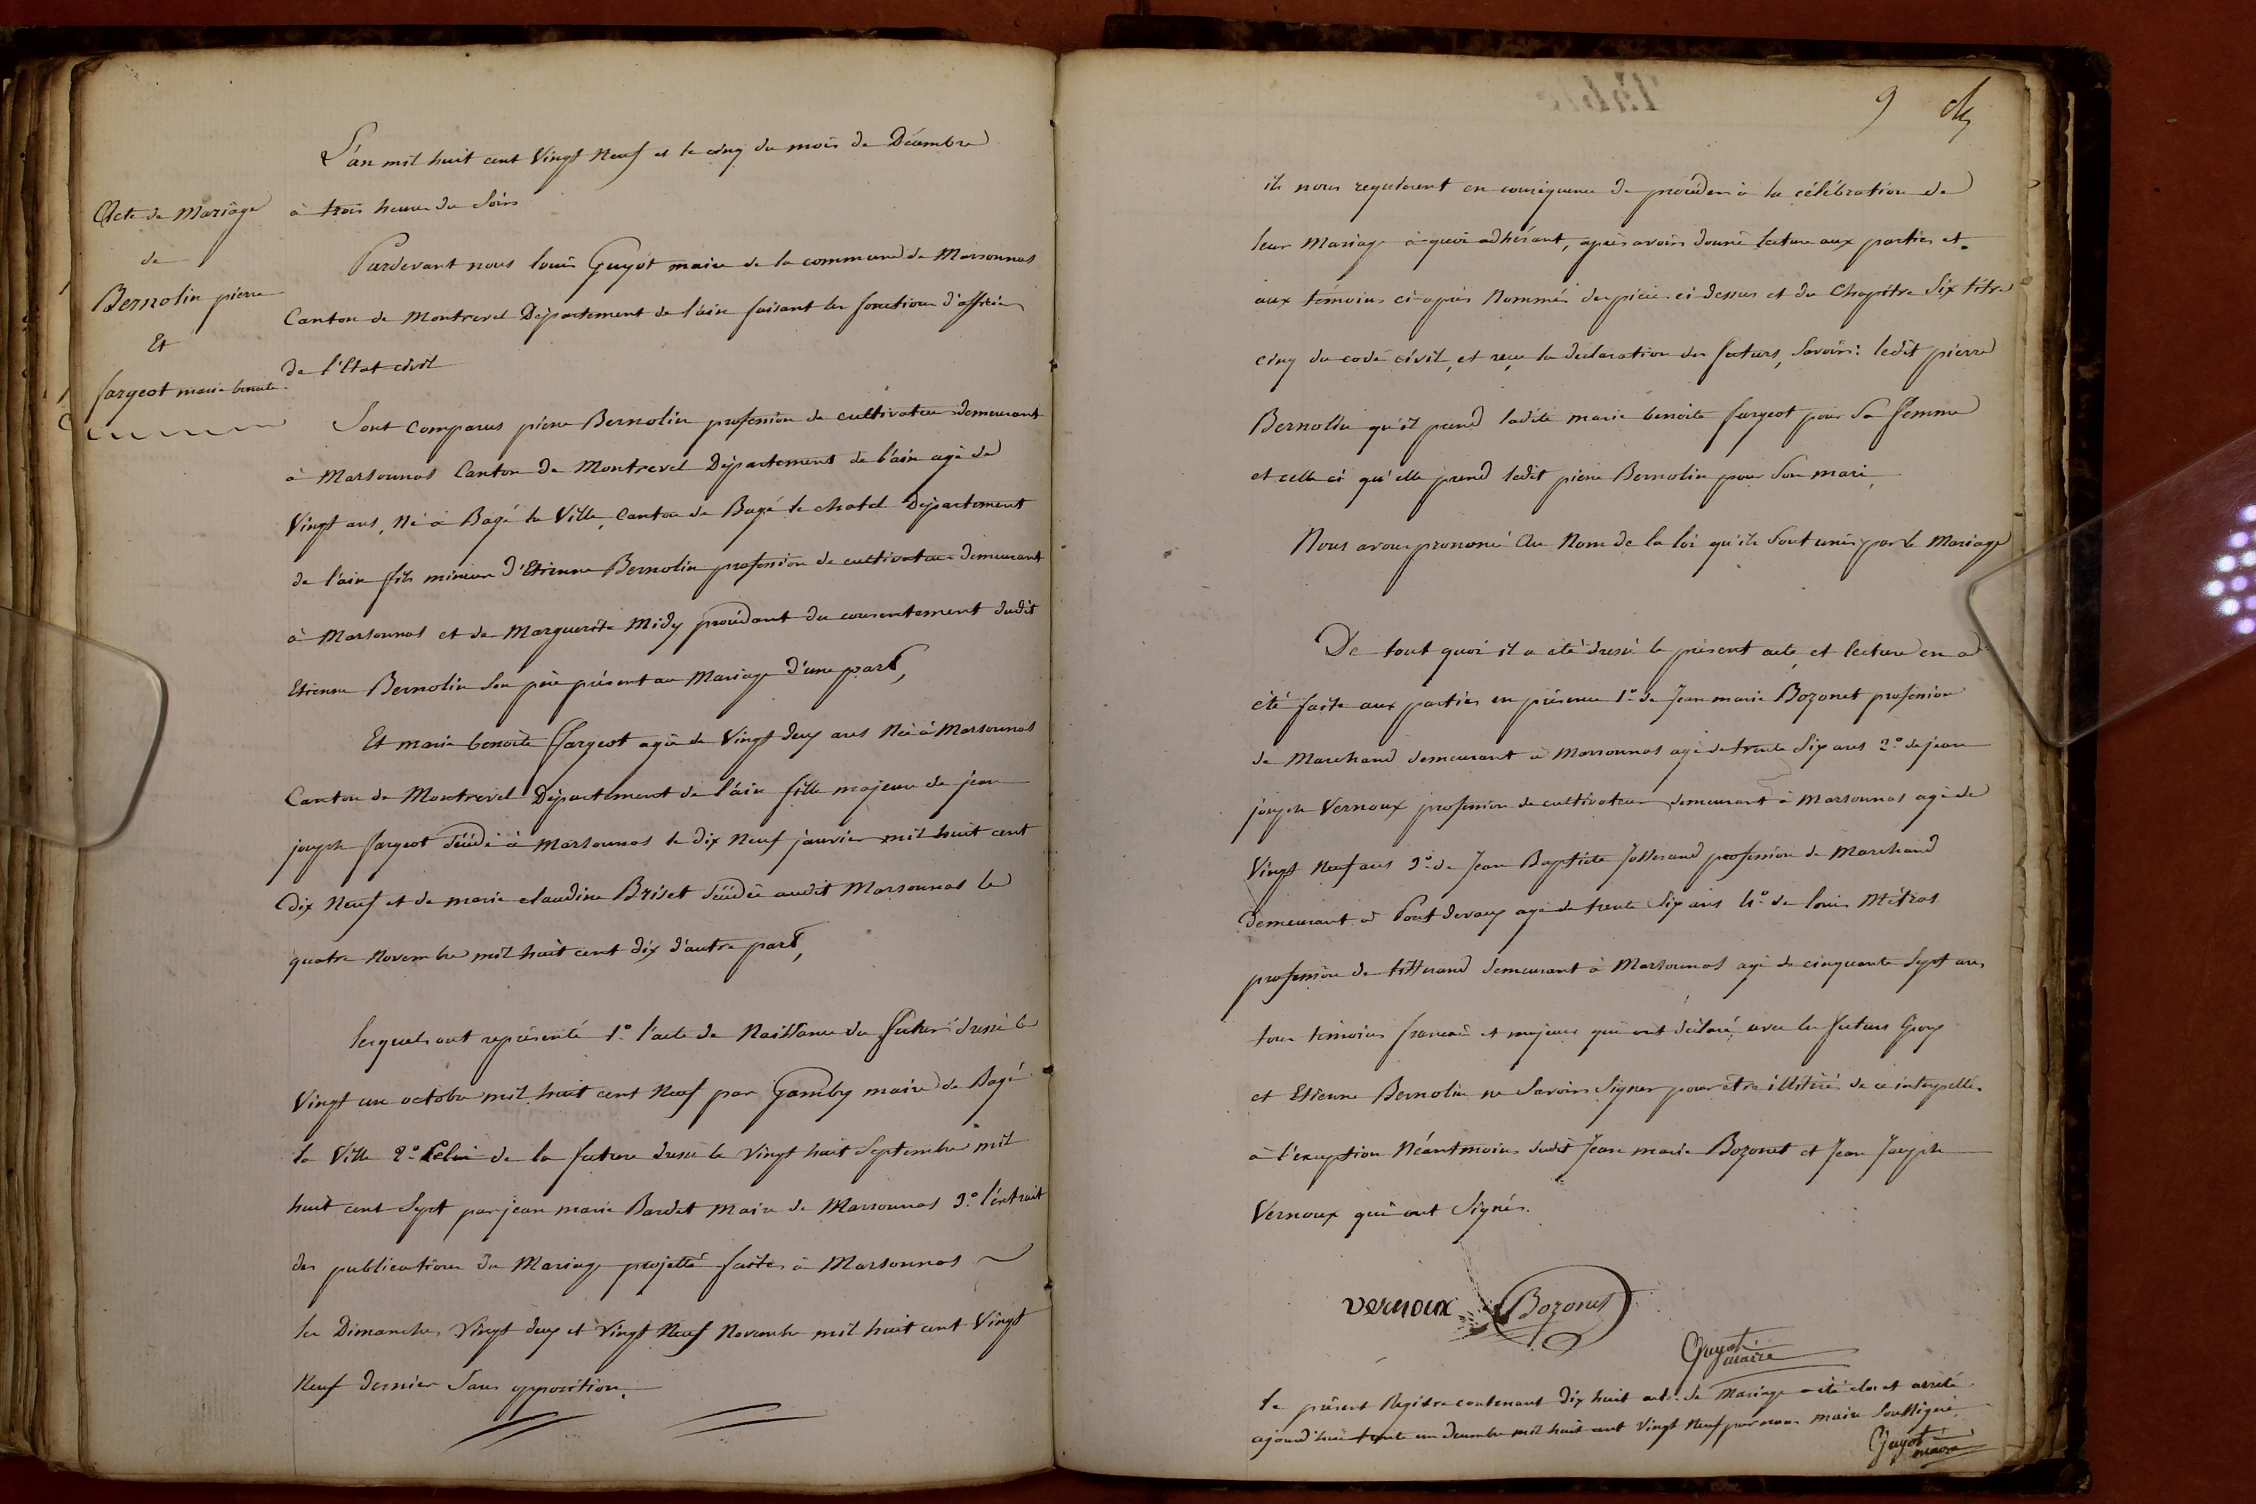 Acte de Mariage
de
Bernolin pierre
Et
fargeot marie benoite
L'an mil huit cent Vingt Neuf et le cinq du mois de Décembre
à trois heure du Soir
Pardevant nous louis Guyot maire de la commune de Marsonnas
Canton de Montrevel Département de l'ain faisant les fonctions d'officier
de l'Etat civil
Sont comparus pierre Bernolin profession de cultivateur demeurant
à Marsonnas Canton de Montrevel Département de l'ain agé de
Vingt ans, Né à Bagé la Ville, Canton de Bagé le chatel Département
de l'ain fils mineur d'Etienne Bernolin profession de cultivateur demeurant
à Marsonnas et de Marguerite Midy procédant du consentement dudit
Etienne Bernolin son père présent au Mariage d'une part,
Et marie benoite fargeot agée de Vingt deux ans Née à Marsonnas
Canton de Montrevel Département de l'ain fille majeure de jean
joseph fargeot décédé à Marsonnas le dix Neuf janvier mil huit cent
Dix Neuf et de marie claudine Briset décédée audit Marsonnas le
quatre Novembre mil huit cent dix d'autre part,
lesquels ont représenté 1.° l'acte de Naissance du futur dressé le
Vingt un octobre mil huit cent Neuf par Gamby maire de Bagé
la Ville 2.° Celui de la future dressé le Vingt huit Septembre mil
huit cent Sept par jean marie Bardet Maire de Marsonnas 3.° l'extrait
des publications du Mariage projetté faites à Marsonnas
les Dimanches Vingt deux et Vingt Neuf Novembre mil huit cent Vingt
Neuf dernier Sans opposition.
9
ils nous requierent en conséquence de procéder à la célébration de
leur Mariage à quoi adhérant, après avoir donné lecture aux parties et
aux témoins ci-après Nommés des pièces ci-dessus et du Chapitre Six titre
cinq du code civil, et reçu la déclaration des futurs, Savoir: ledit pierre
Bernolin qu'il prend ladite marie benoite fargeot pour Sa femme
et celle ci qu'elle prend ledit pierre Bernolin pour Son mari,
Nous avons prononcé Au Nom de la loi qu'ils Sont unis par le Mariage
De tout quoi il a été dressé le présent acte, et lecture en a
été faite aux parties en présence 1.° de Jean marie Bozonet profession
de Marchand demeurant à Marsonnas agé de trente Six ans 2.° de jean
joseph Vernoux profession de cultivateur demeurant à Marsonnas agé de
Vingt Neuf ans 3.° de Jean Baptiste profession de Marchand
demeurant à Pont devaux agé de trente Six ans 4.° de louis Métras
profession de tisserand demeurant à Marsonnas agé de cinquante Sept ans,
tous témoins français et majeurs qui ont déclaré, avec les futurs Epoux
et Etienne Bernolin ne Savoir Signer pour être illitérés de ce interpellés
à l'exception Néantmoins dudit Jean marie Bozonet et Jean Joseph
Vernoux qui ont Signés.
vernoux Bozonet
Guyot
maire
Le présent Registre contenant dix huit actes de Mariage a été clos et arrété
ajourd'hui trente un decembre mil huit cent Vingt Neuf par nous maire Soussigné,
Guyot
maire